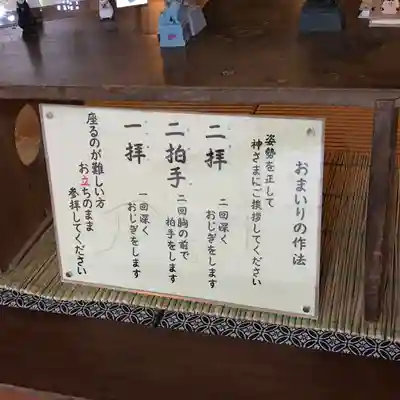 おまいりの作法
姿勢を正して
神さまにご挨拶してください
二拝
二回深く
おじぎをします
二拍手
二回胸の前で
拍手をします
一拝
一回深く
おじぎをします
座るのが難しい方
お立ちのまま
参拝してください